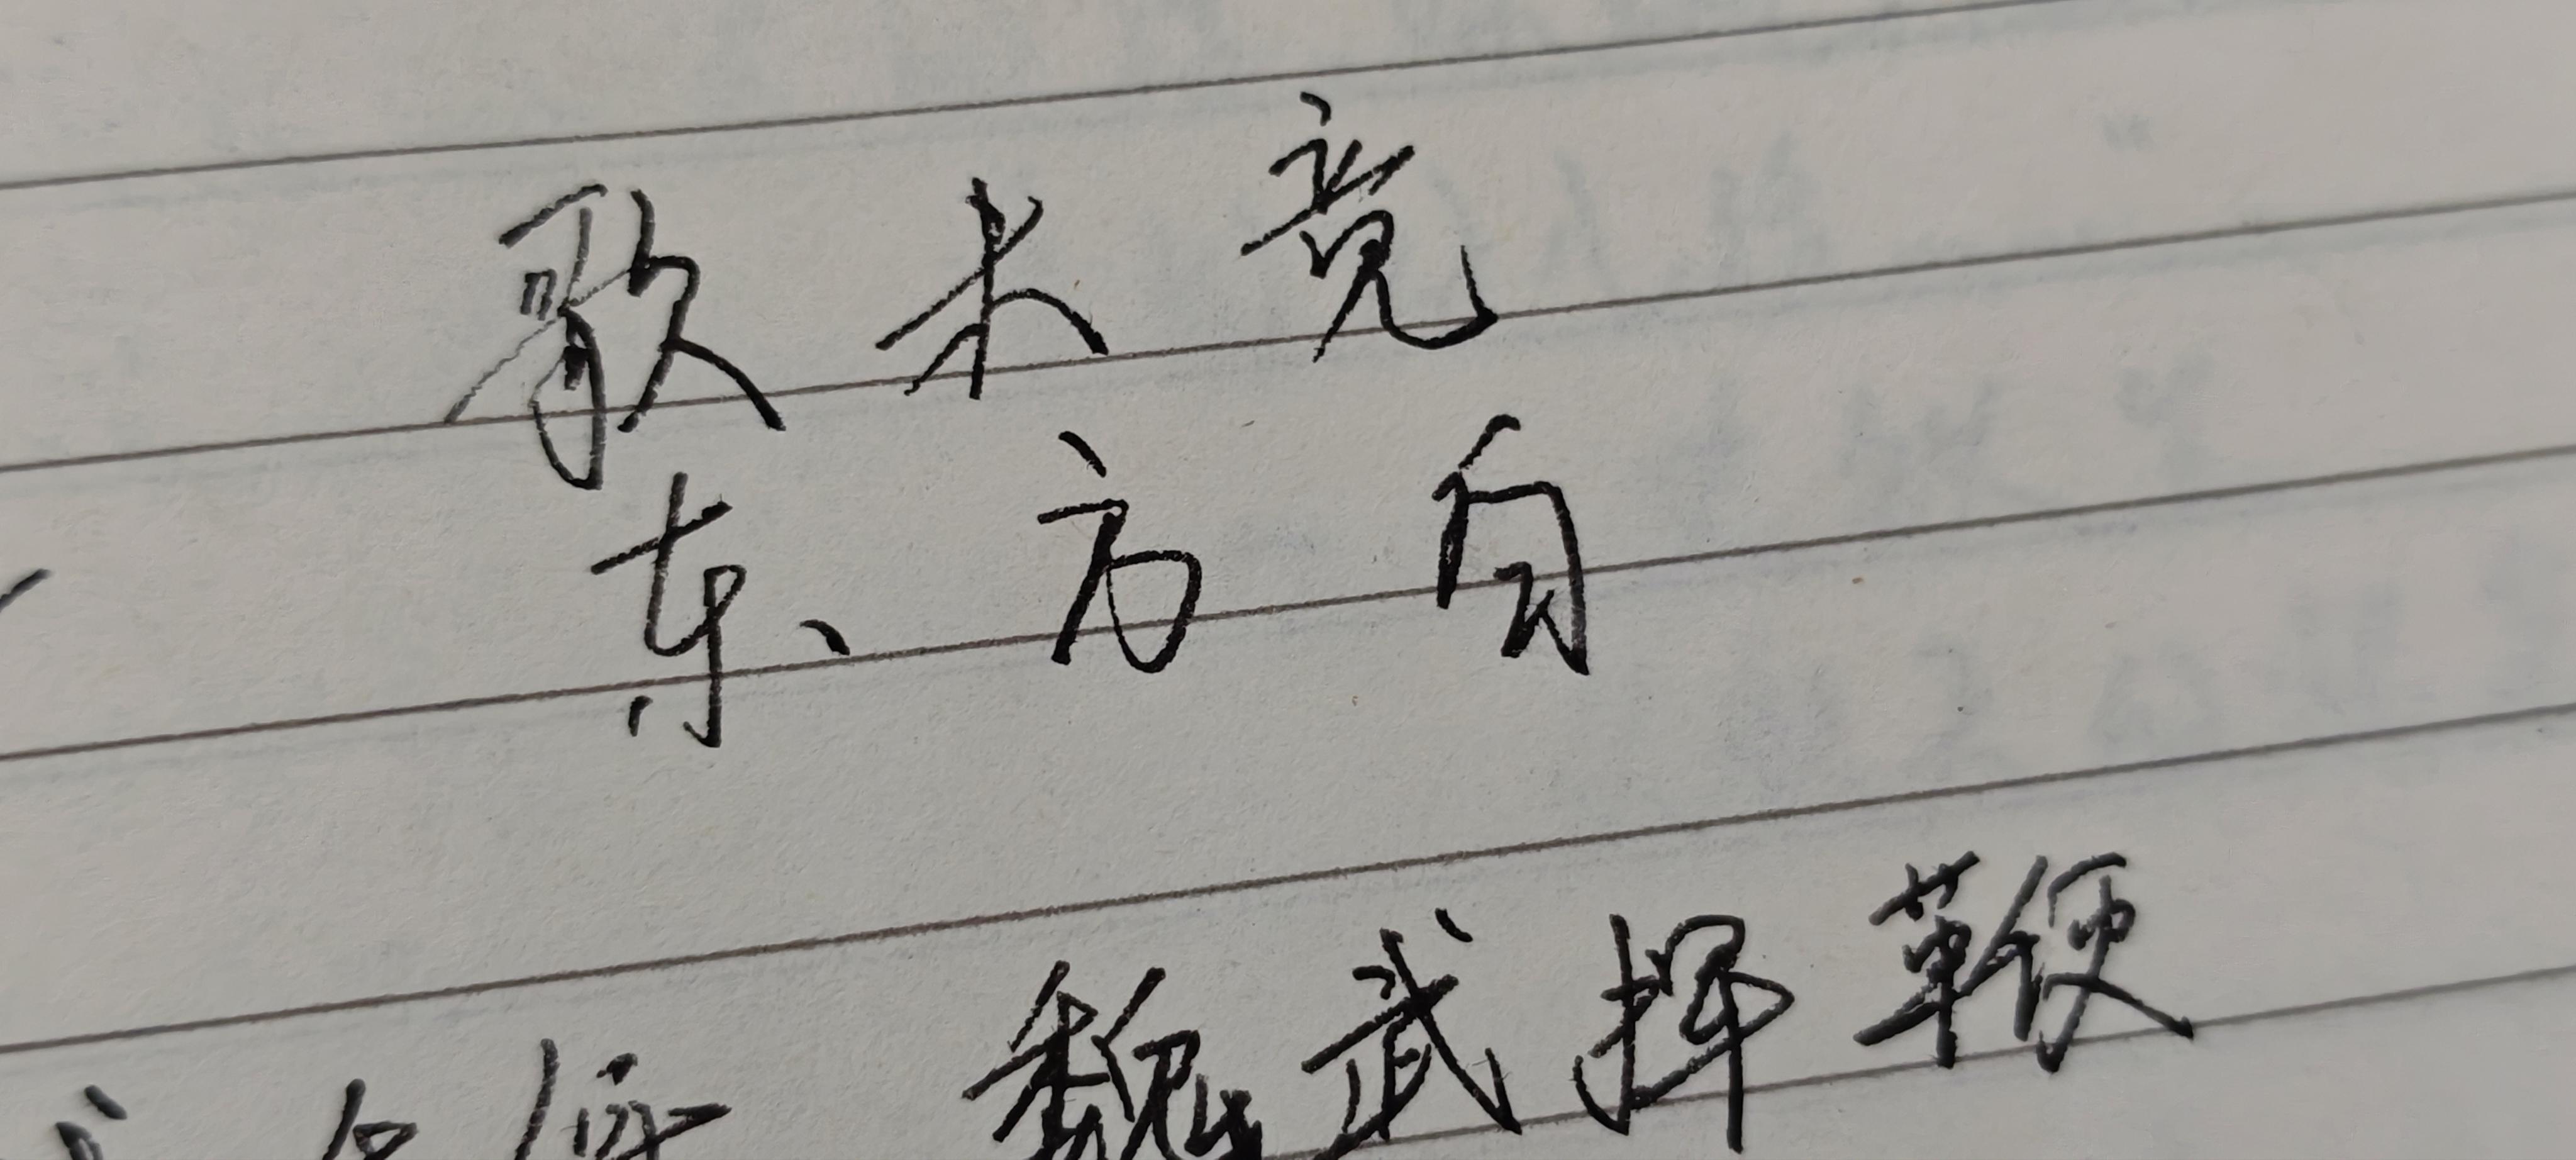 歌未竟
东方白
魏武挥鞭